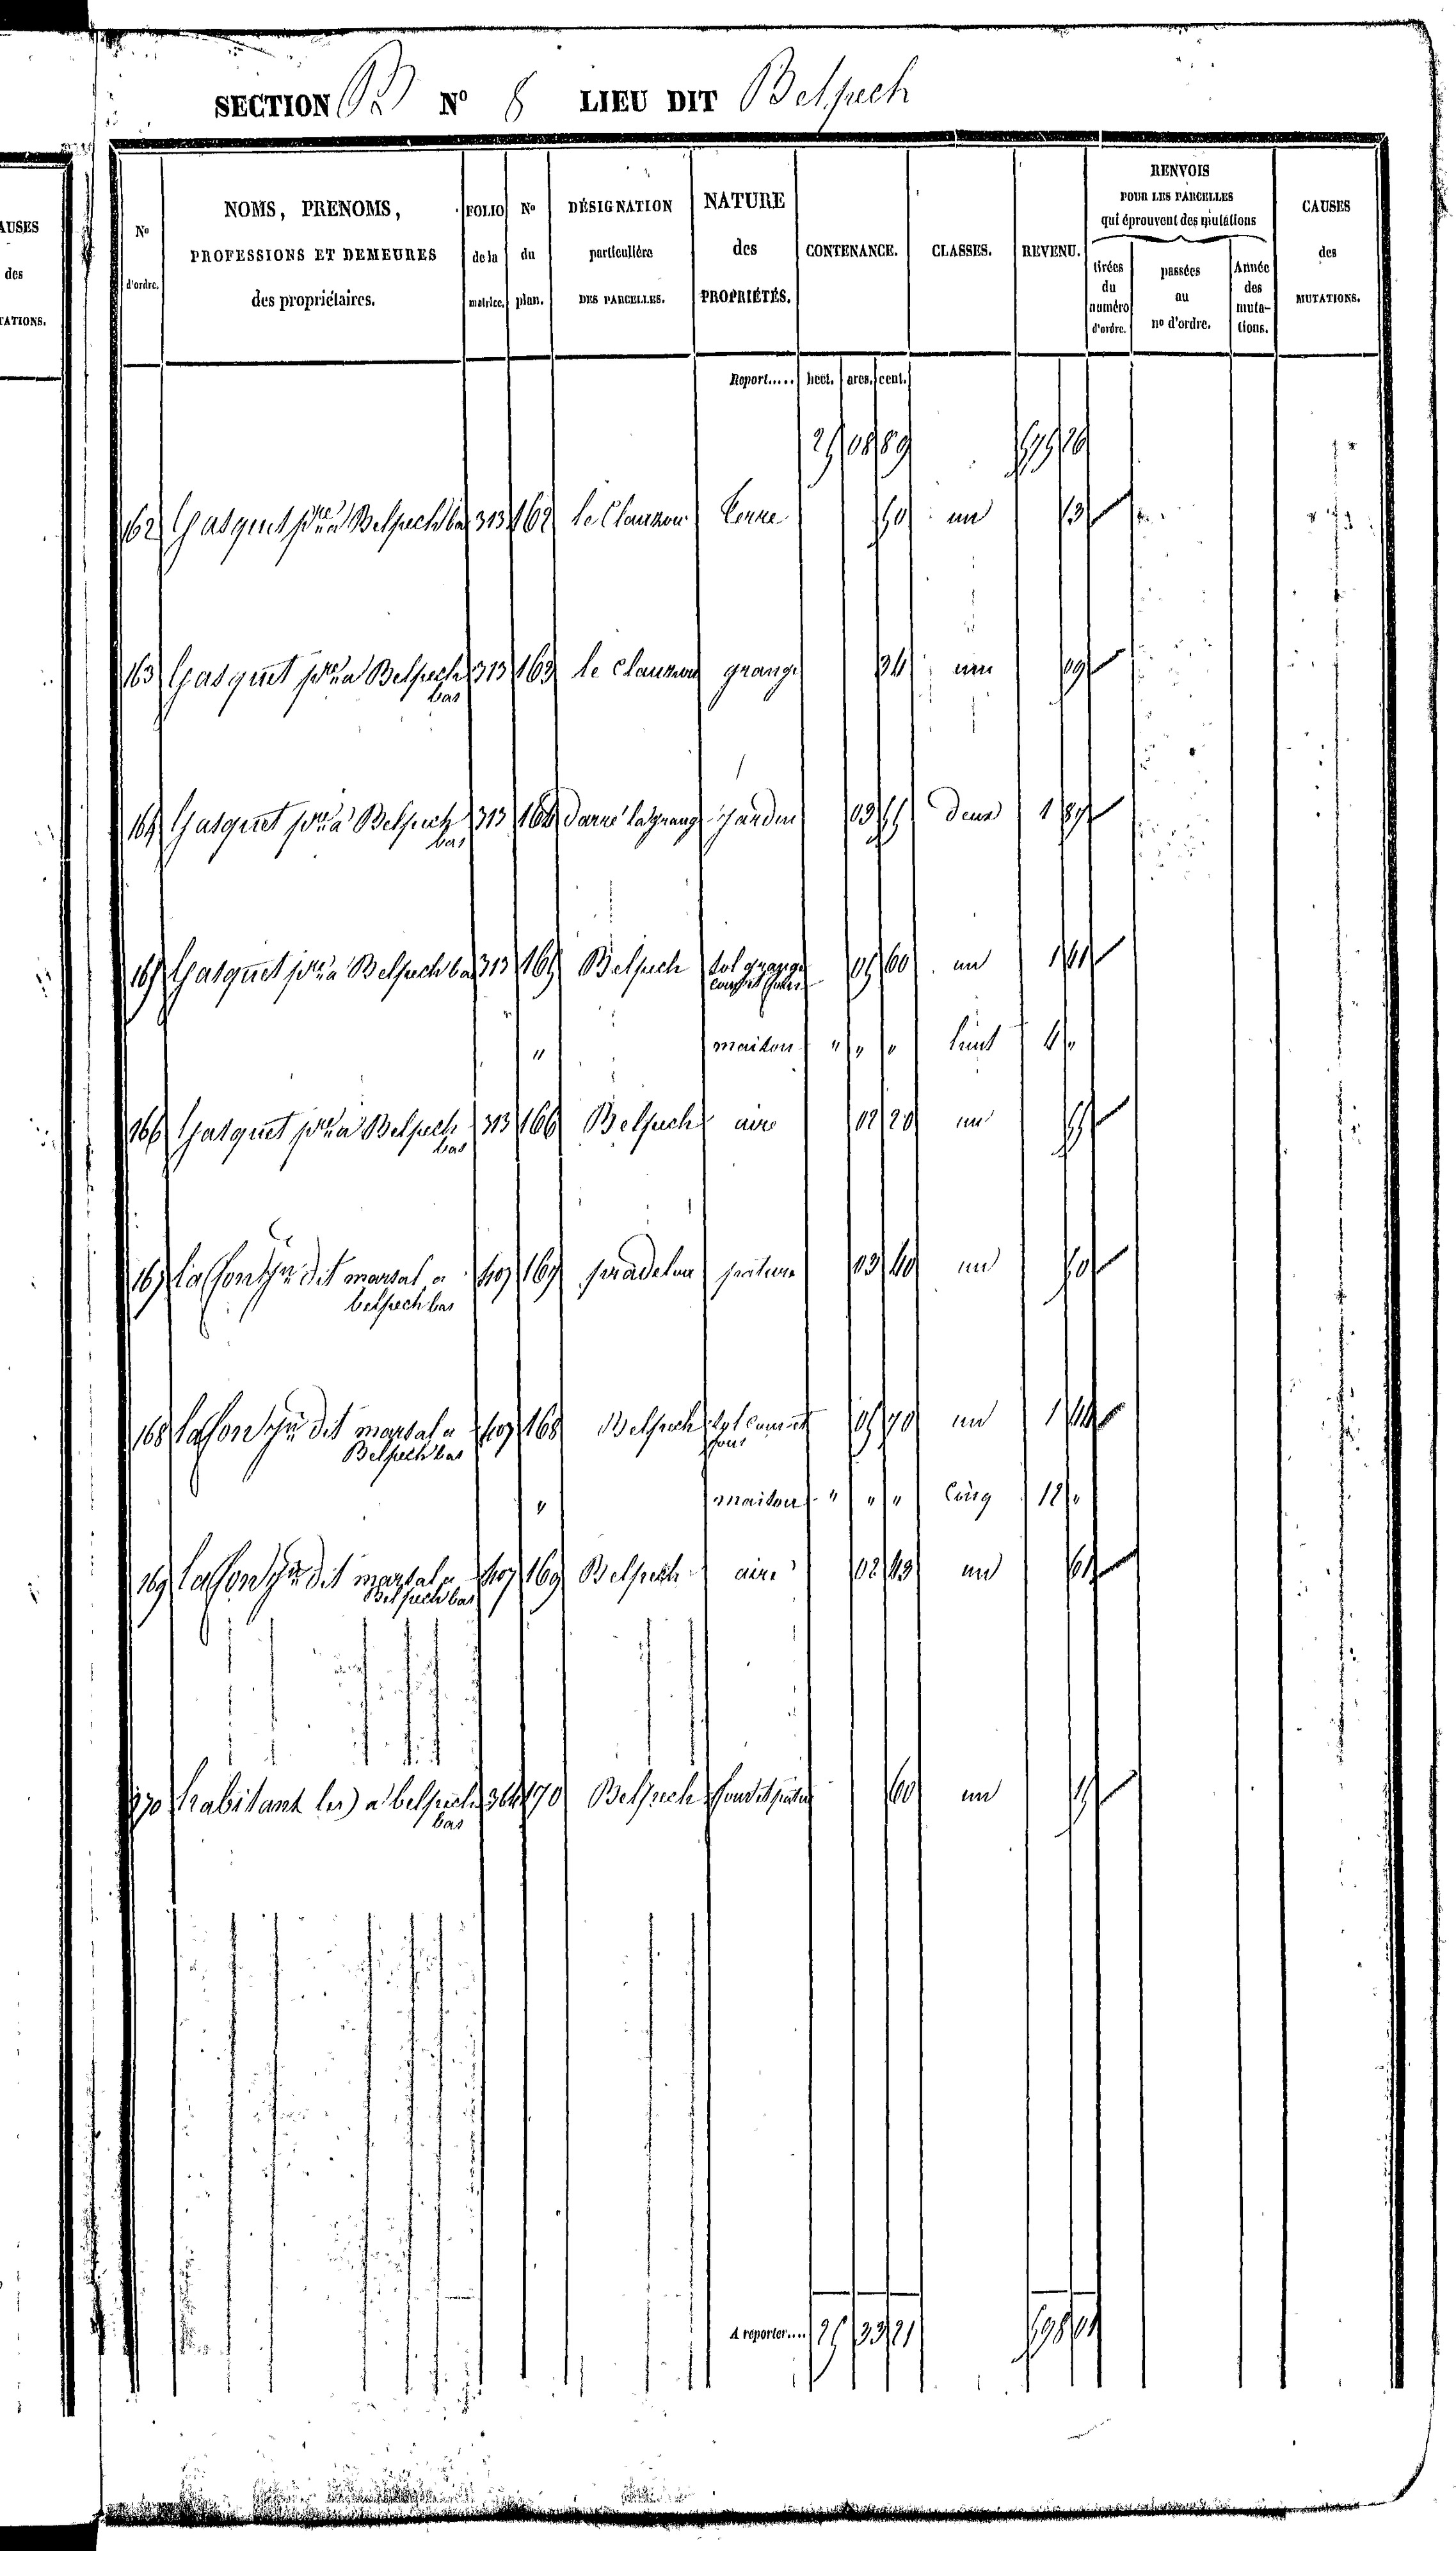 SECTION B N° 8 LIEU DIT Belpech
AUSES
des
TATIONS.
N° d'ordre.
NOMS, PRENOMS, PROFESSIONS ET DEMEURES des propriétaires.
FOLIO de la matrice.
N° du plan.
DÉSIGNATION particulière DES PARCELLES.
NATURE des PROPRIÉTÉS.
CONTENANCE.
CLASSES.
REVENU.
RENVOIS POUR LES PARCELLES qui éprouvent des mutations
tirées du numéro d'ordre.
passées au no d'ordre.
Année des mutations.
CAUSES des MUTATIONS.
Report..... hect. ares. cent.
25 08 89 575 26
162 Gasquet à Belpech bas 313 162 le Clauzou terre 50 un 13
163 Gasquet à Belpech 313 163 le Clauzou grange 34 un 09
bas
164 Gasquet à Belpech 313 164 jardin 03 55 deux 1 87
bas
165 Gasquet à Belpech bas 313 165 Belpech sol grange 05 60 un 1 41
" maison " " " huit 4 "
166 Gasquet à Belpech 313 166 Belpech aire 02 20 un 55
bas
167 lafon dit marsal a 407 167 pradelou pature 03 40 un 50
belpech bas
168 lafon dit marsal a 407 168 Belpech sol cour et 05 70 un 1 44
Belpech bas four
" maison " " " cinq 12 "
169 lafon dit marsal a 407 169 Belpech aire 02 43 un 61
Belpech bas
170 habitant les) a belpech 364 170 Belpech 60 un 15
bas
A reporter.... 25 33 21 598 01